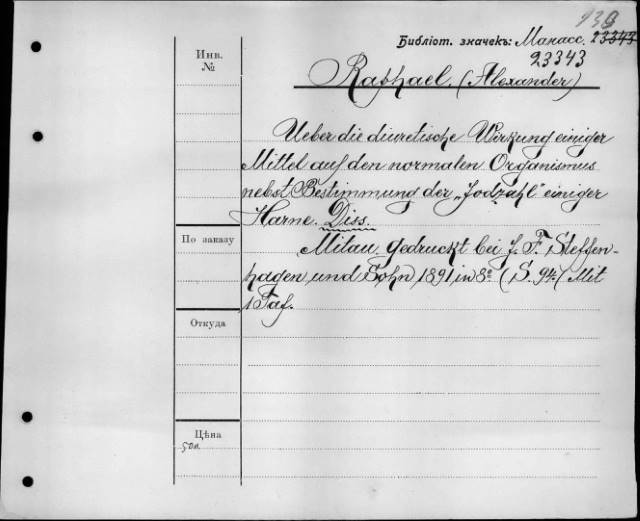 939
Библіот. значекъ: Манасс. 23343
23343
Инв.
№
Raphael. (Alexander)
Ueber die diuretische Wirkung einiger
Mittel auf den normalen Organismus
nebst Bestimmung der „Jodzahl" einiger
Harne. Diss.
По заказу
Mitau, gedruckt bei J. F. Steffen-
hagen und Sohn 1891, in 8º (S. 94.( Mit
1 Taf.
Откуда
Цѣна